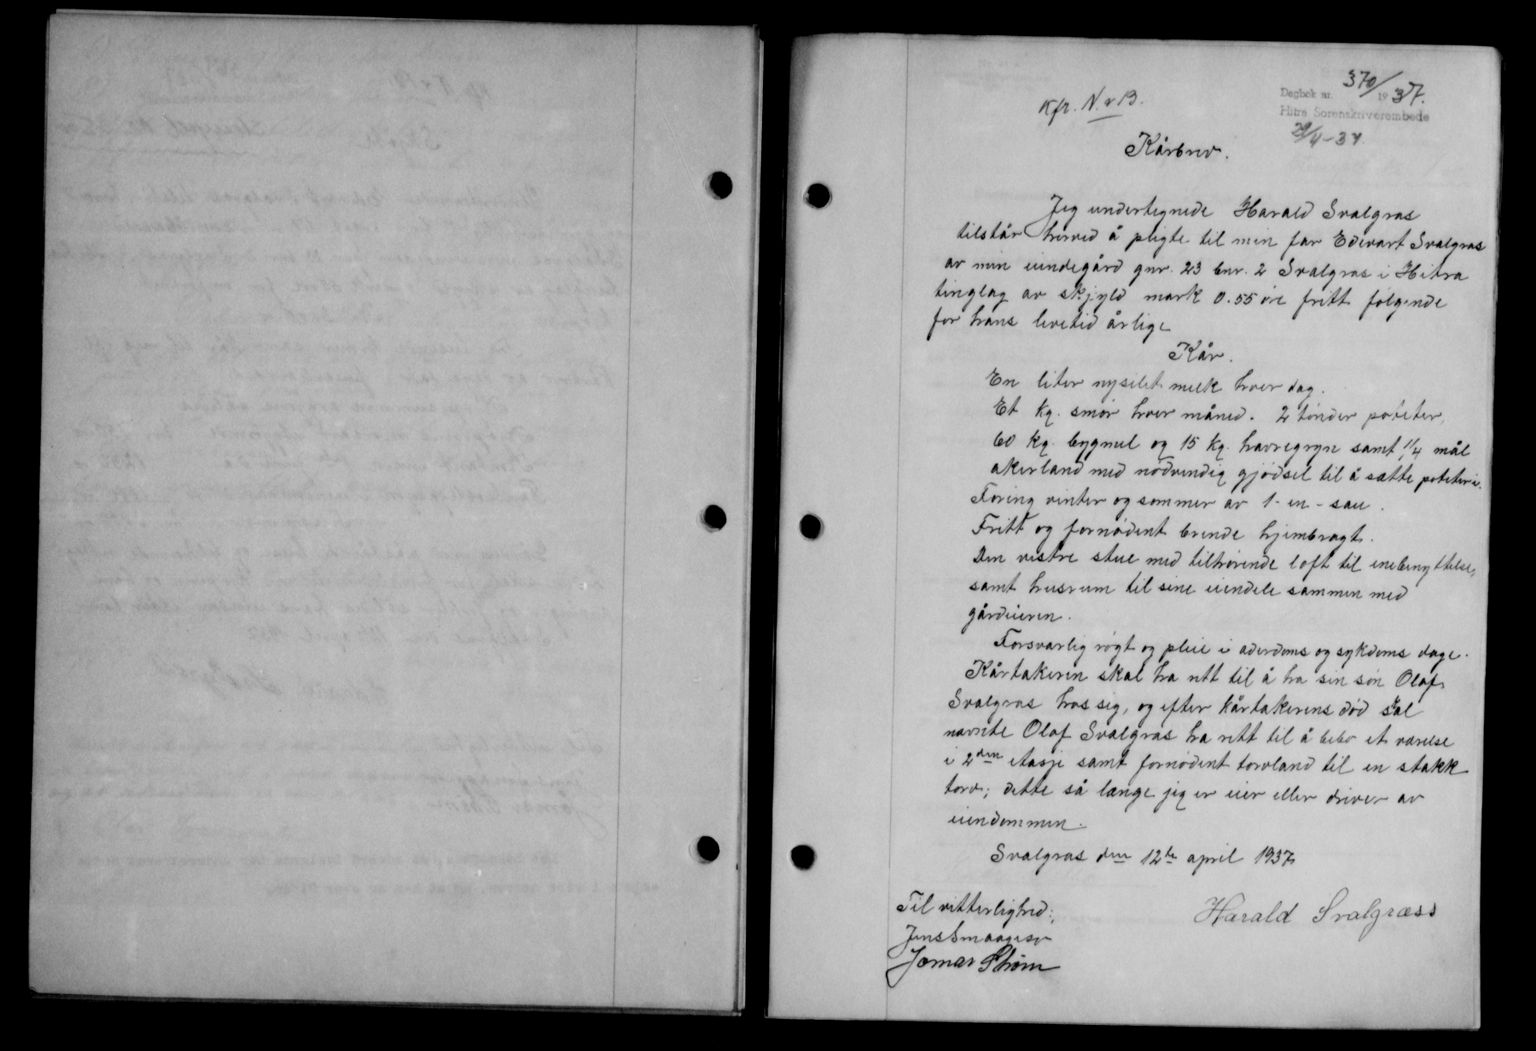 Kfr. N. & B.
370/
Dagbok nr. 1937.
Hitra Sorenskriverembede
29/4-37
Kårbrev.
Jeg undertegnede Harald Svalgras
tilstår herved å pligte til min far Edevart Svalgras
av min eiendegård gnr. 23 bnr. 2 Svalgras i Hitra
tinglag av skyld mark 0.55 øre fritt følgende
for hans levetid årlige
Kår.
En liter nysilet melk hver dag.
Et kg. smør hver måned. 2 tønder poteter,
60 kg. bygmel og 15 kg. havregryn samt 1/4 mål
akerland med nødvendig gjødsel til å sætte poteter i.
Foring vinter og sommer av 1-en-sau.
Fritt og fornødent brende hjembragt.
Den vestre stue med tilhørende loft til enebenyttelse,
samt husrum til sine eiendele sammen med
gårdeieren.
Forsvarlig røgt og pleie i alderdoms og sykdoms dage.
Kårtakeren skal ha rett til å ha sin søn Olaf
Svalgras hos sig, og efter kårtakerens død skal
nævnte Olaf Svalgras ha rett til å bebo et værelse
i 2den etasje samt fornødent torvland til en stakk
torv; dette så længe jeg er eier eller driver av
eiendommen.
Svalgras den 12te april 1937
Til vitterlighed:
Harald Svalgræss
Jens Smaagesjø
Jomar Strøm